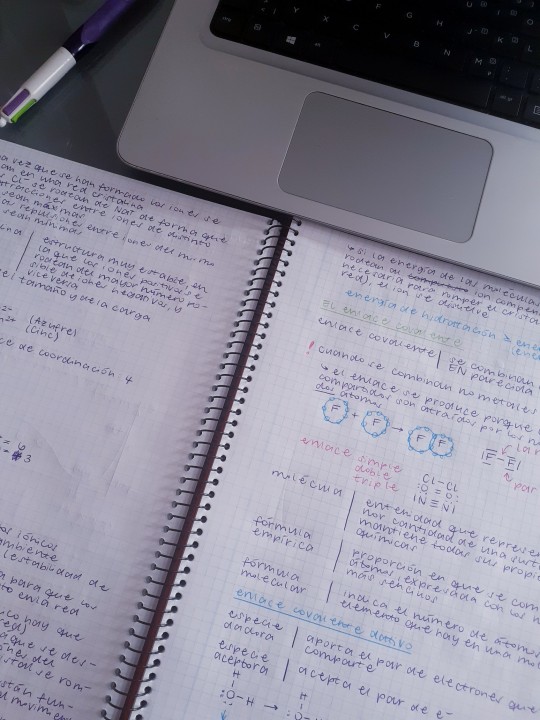 a vez que se han formado los iones se
an en una red cristalina
s Cl⁻ se rodean de Na⁺ de forma que
atracciones entre iones de distinto
sean máximas
as repulsiones entre iones del mismo
sean mínimas
estructura muy estable, en
la que los iones positivos se
rodean del mayor número po-
sible de iones negativos, y
viceversa
tamaño y de la carga
(Azufre)
(Cinc)
ce de coordinación 4
= 6
3
os iónicos
ambiente
(estabilidad de
a para que los
to en la red
uco hay que
red)
a que se des-
ones del
istal se rom-
están fun-
l movimien
↳ si la energía de las moléculas
rodean al ion compen
necesaria para romper el crista
red), el ion se disuelve
energía de hidratación > ener
El enlace covalente
enlace covalente | se combinan
EN parecida
! cuando se combinan no metales
↳ el enlace se produce porque
compartidos son atraídos por los n
dos átomos
F + F → F F
enlace simple
doble
triple
Cl–Cl
:O=O:
IN≡NI
IF–FI
par
molécula | entidad que represen
nor cantidad de una sust
mantiene todas sus propie
químicas
fórmula
empírica | proporción en que se com
átomos (expresada con los n
más sencillos
fórmula
molecular | indica el número de átomos
elemento que hay en una mol
enlace covalente dativo
especie
dadora | aporta el par de electrones que
comparte
especie
aceptora | acepta el par de e⁻
H H
:O–H → :O–H